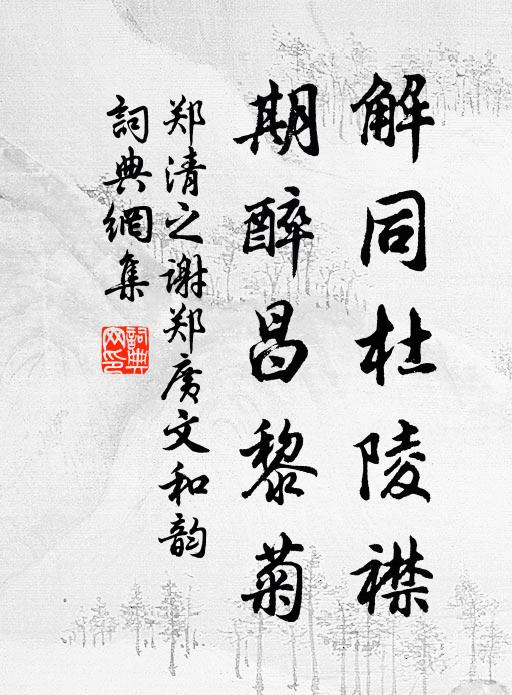 解同杜陵襟
期醉昌黎菊
郑清之谢郑广文和韵
詞典網集
詞典网印